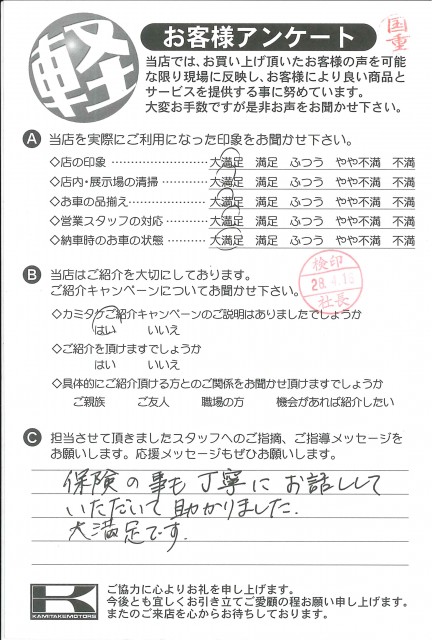 軽
お客様アンケート
国重
当店では、お買い上げ頂いたお客様の声を可能
な限り現場に反映し、お客様により良い商品と
サービスを提供する事に努めています。
大変お手数ですが是非お声をお聞かせ下さい。
A 当店を実際にご利用になった印象をお聞かせ下さい。
◇店の印象 ………………… 大満足 満足 ふつう やや不満 不満
◇店内・展示場の清掃 ………… 大満足 満足 ふつう やや不満 不満
◇お車の品揃え ……………… 大満足 満足 ふつう やや不満 不満
◇営業スタッフの対応 ……… 大満足 満足 ふつう やや不満 不満
◇納車時のお車の状態 ……… 大満足 満足 ふつう やや不満 不満
B 当店はご紹介を大切にしております。
ご紹介キャンペーンについてお聞かせ下さい。
検印
社長
◇カミタケご紹介キャンペーンのご説明はありましたでしょうか
はい いいえ
◇ご紹介を頂けますでしょうか
はい いいえ
◇具体的にご紹介頂ける方とのご関係をお聞かせ頂けますでしょうか
ご親族 ご友人 職場の方 機会があれば紹介したい
C 担当させて頂きましたスタッフへのご指摘、ご指導メッセージを
お願いします。応援メッセージもぜひお願いします。
保険の事も丁寧にお話しして
いただいて助かりました.
大満足です.
K
KAMITAKEMOTORS
ご協力に心よりお礼を申し上げます。
今後とも宜しくお引き立てご愛顧の程お願い申し上げます。
またのご来店を心からお待ちしております。